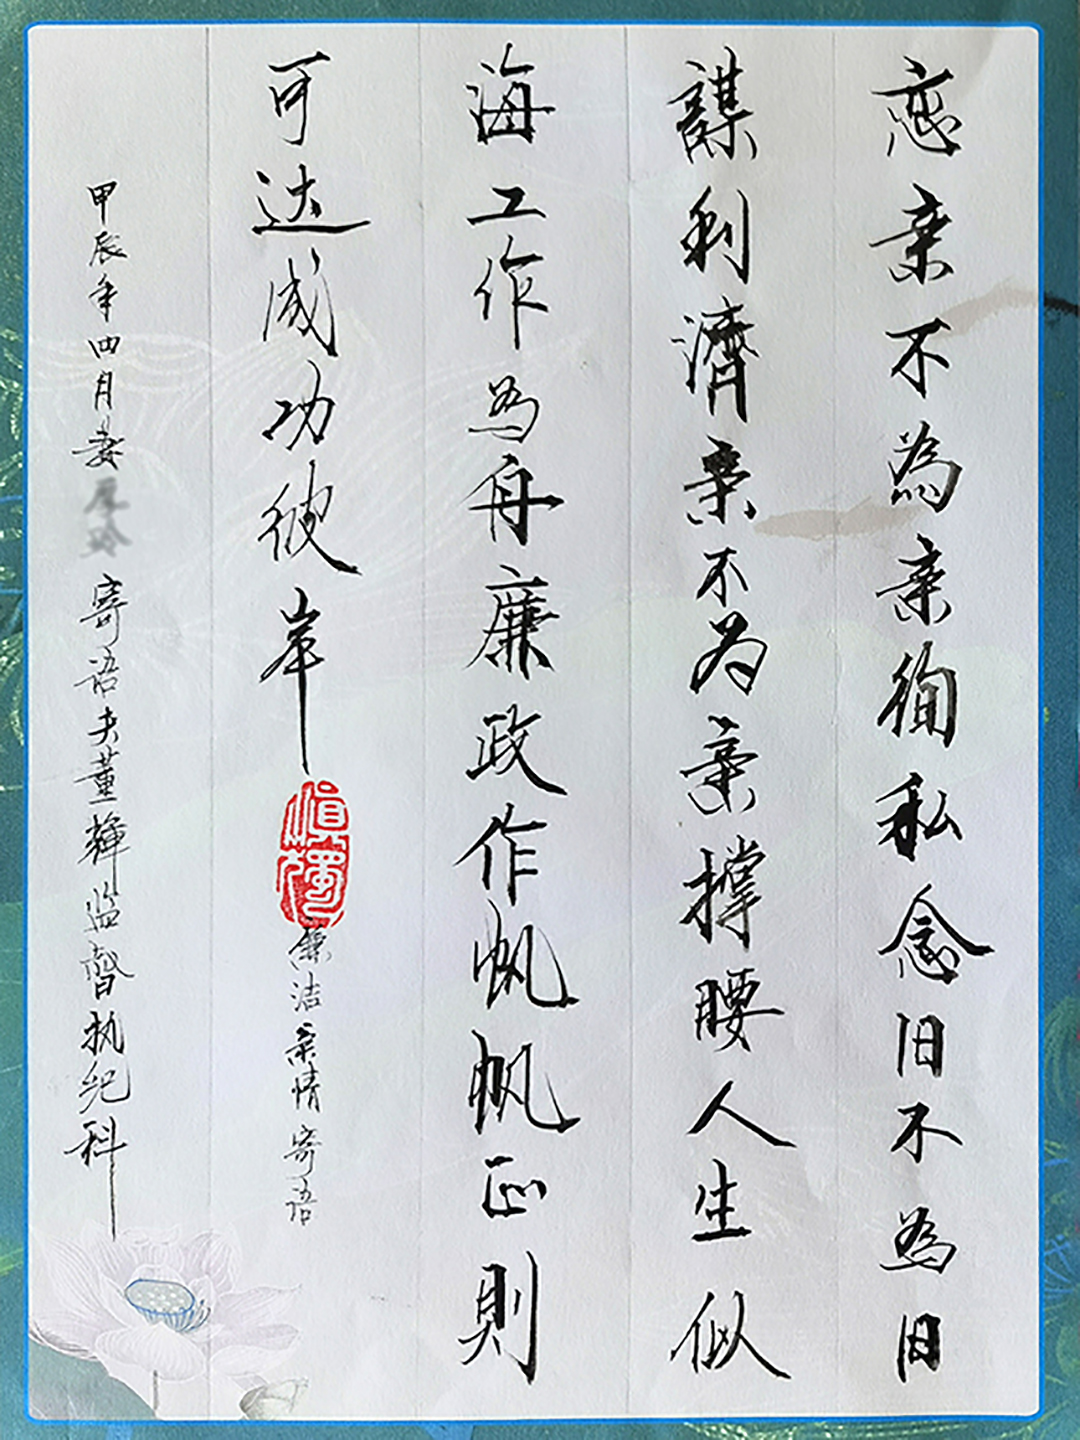 恋亲不為亲徇私念旧不為旧
謀利濟亲不为亲撑腰人生似
海工作為舟廉政作帆帆正則
可达成功彼岸
慎獨
廉洁亲情寄语
甲辰年四月妻
寄语夫董輝监督执纪科